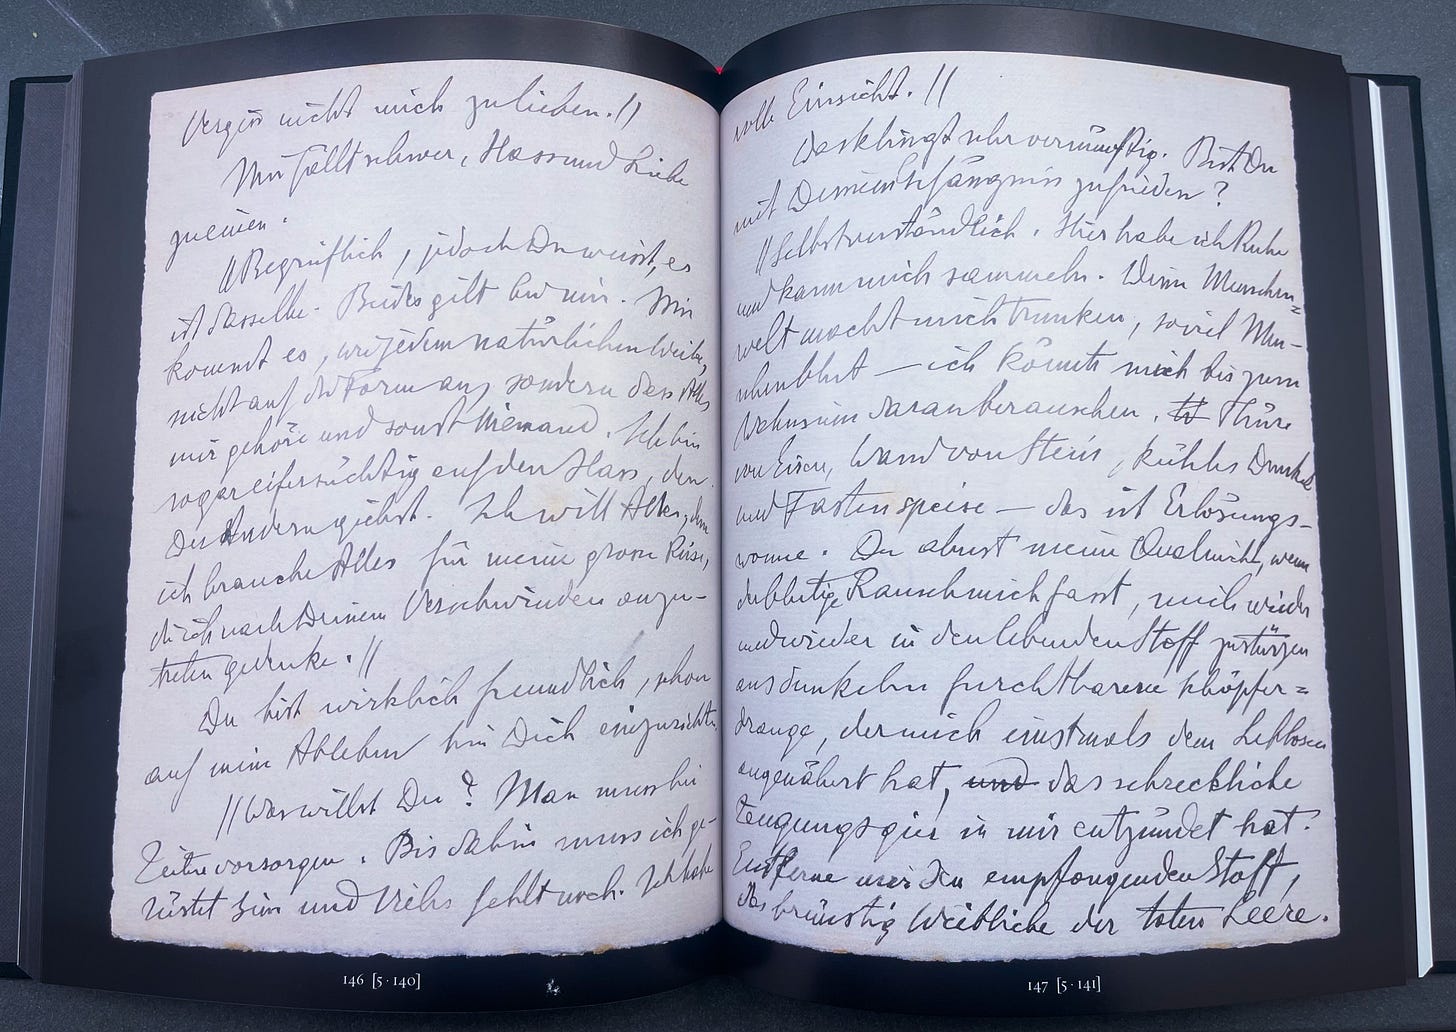 Vergiß nicht mich zu lieben. //
Mir fällt schwer, Hass und Liebe
zu einen.
// Begreiflich, jedoch Du weisst, es
ist dasselbe. Beides gilt bei mir. Mir
kommt es, wie jedem natürlichen Weibe,
nicht auf die Form an, sondern dass Alles
mir gehöre und sonst Niemand. Ich bin
sogar eifersüchtig auf den Hass, den
Du Andern giebst. Ich will Alles, denn
ich brauche Alles für meine grosse Reise,
die ich nach Deinem Verschwinden anzu-
treten gedenke. //
Du bist wirklich freundlich, schon
auf mein Ableben hin Dich einzurichten.
// Was willst Du? Man muss bei
Zeiten vorsorgen. Bis dahin muss ich ge-
rüstet sein und Vieles fehlt noch. Ich habe
146 [5 · 140]
volle Einsicht. //
Das klingt sehr vernünftig. Bist Du
mit Deinem Gefängniss zufrieden?
// Selbstverständlich. Hier habe ich Ruhe
und kann mich sammeln. Deine Menschen=
welt macht mich trunken, soviel Men-
schenblut — ich könnte mich bis zum
Wahnsinn daran berauschen. Thüre
von Eisen, Wand von Stein, kühles Dunkel
und Fastenspeise — das ist Erlösungs-
wonne. Du ahnst meine Qual nicht, wenn
der blutige Rausch mich fasst, mich wieder
und wieder in den lebenden Stoff zu stürzen
aus dunkelm furchtbarem Schöpfer=
drange, der mich einstmals dem Leblosen
angenähert hat, und das schreckliche
Zeugungsgier in mir entzündet hat.
Entferne mir den empfangenden Stoff,
das brünstig Weibliche der toten Leere.
147 [5 · 141]